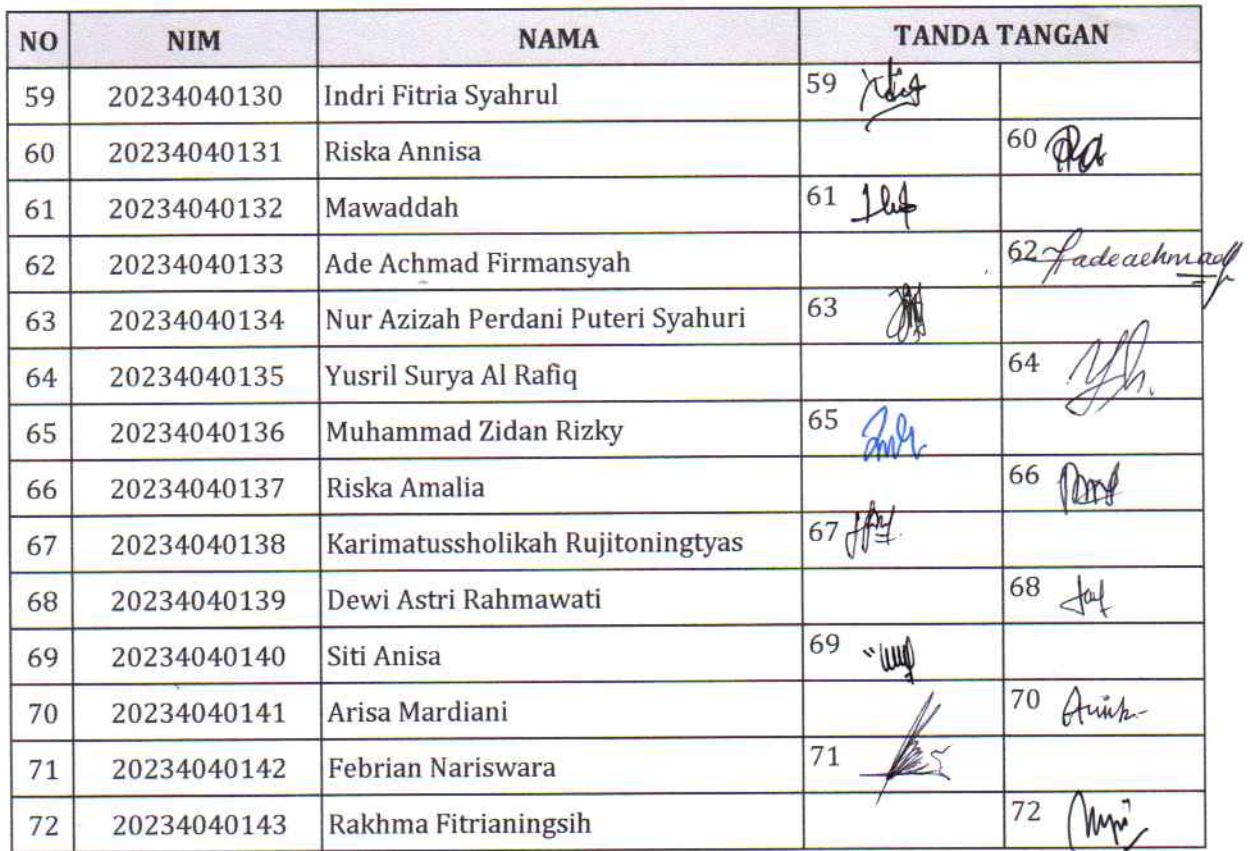 NO NIM NAMA TANDA TANGAN
59 20234040130 Indri Fitria Syahrul 59
60 20234040131 Riska Annisa 60
61 20234040132 Mawaddah 61
62 20234040133 Ade Achmad Firmansyah 62 fadeachmad
63 20234040134 Nur Azizah Perdani Puteri Syahuri 63
64 20234040135 Yusril Surya Al Rafiq 64
65 20234040136 Muhammad Zidan Rizky 65
66 20234040137 Riska Amalia 66
67 20234040138 Karimatussholikah Rujitoningtyas 67
68 20234040139 Dewi Astri Rahmawati 68
69 20234040140 Siti Anisa 69
70 20234040141 Arisa Mardiani 70
71 20234040142 Febrian Nariswara 71
72 20234040143 Rakhma Fitrianingsih 72